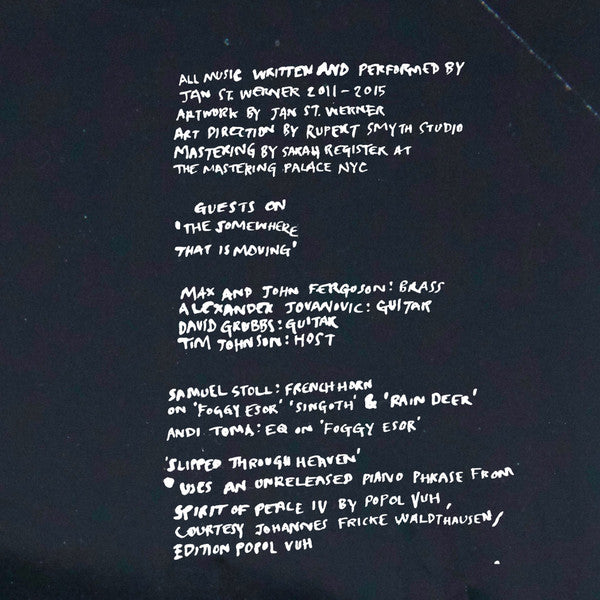 ALL MUSIC WRITTEN AND PERFORMED BY
JAN ST. WERNER 2011-2015
ARTWORK BY JAN ST. WERNER
ART DIRECTION BY RUPERT SMYTH STUDIO
MASTERING BY SARAH REGISTER AT
THE MASTERING PALACE NYC
GUESTS ON
'THE SOMEWHERE
THAT IS MOVING'
MAX AND JOHN FERGOSON: BRASS
ALEXANDER JOVANOVIC: GUITAR
DAVID GRUBBS: GUITAR
TIM JOHNSON: HOST
SAMUEL STOLL: FRENCH HORN
ON 'FOGGY ESOR' 'SINGOTH' & 'RAIN DEER'
ANDI TOMA: EQ ON 'FOGGY ESOR'
'SLIPPED THROUGH HEAVEN'
USES AN UNRELEASED PIANO PHRASE FROM
SPIRIT OF PEACE IV BY POPOL VUH,
COURTESY JOHANNES FRICKE WALDTHAUSEN/
EDITION POPOL VUH